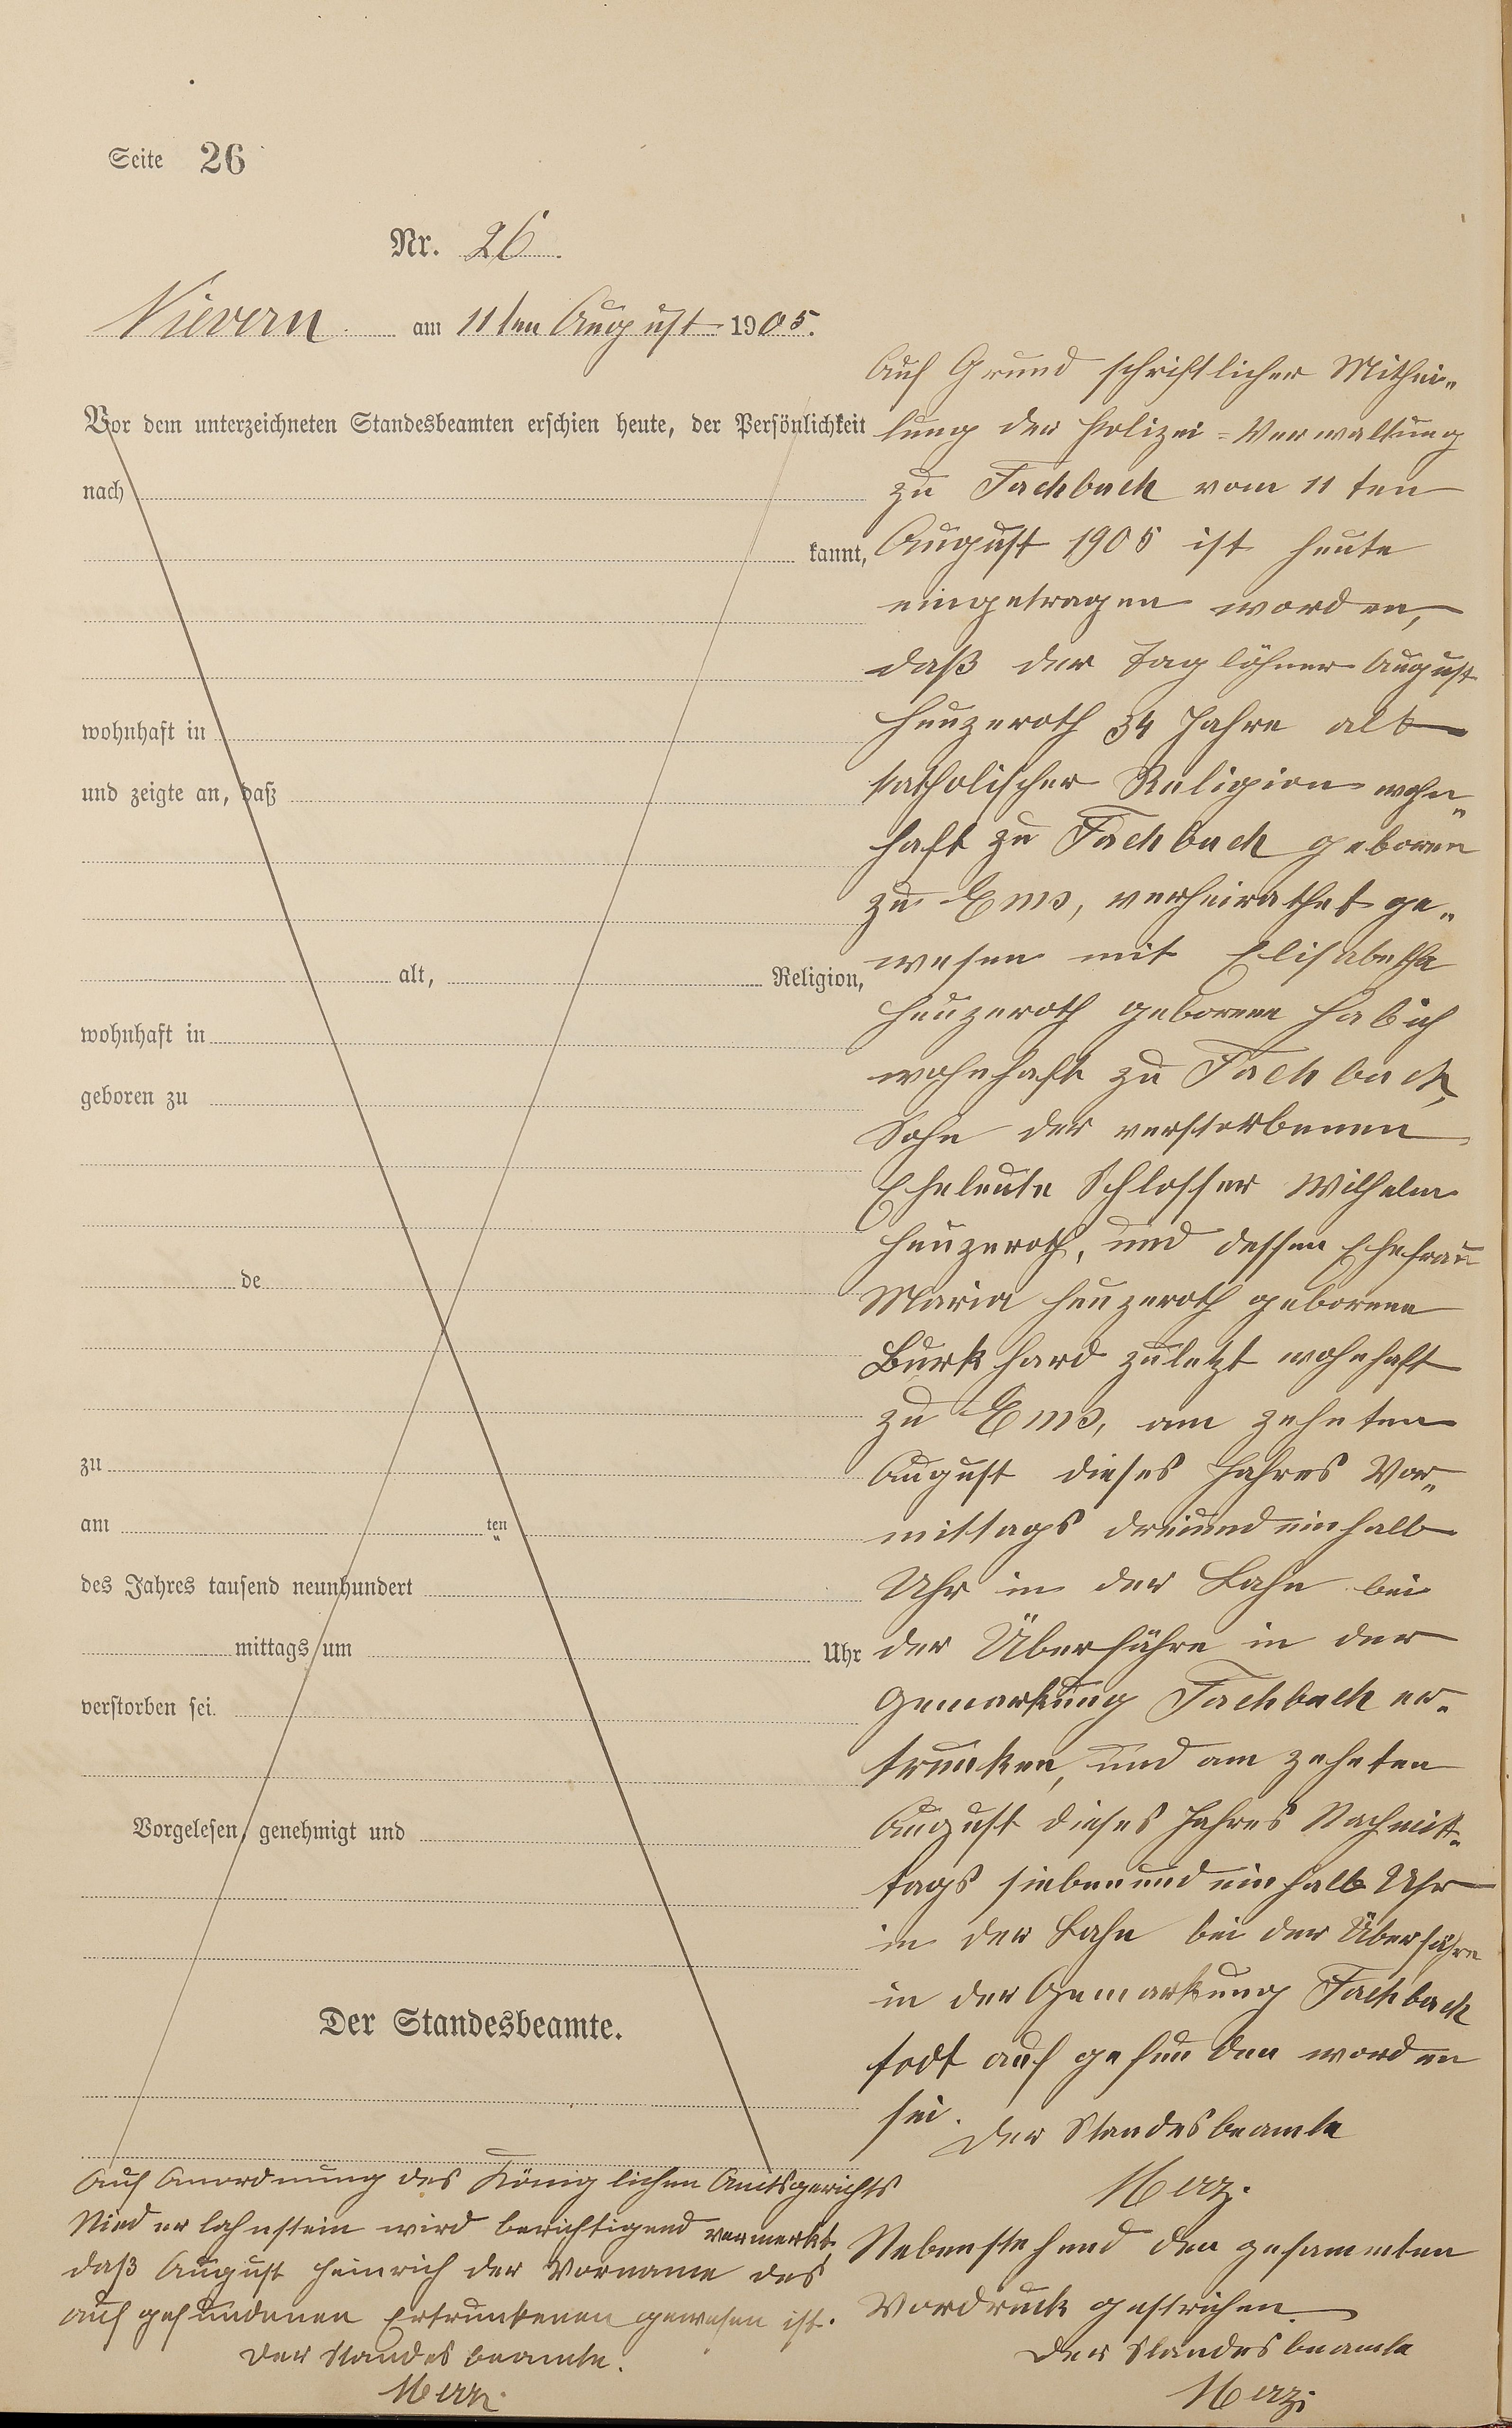 Seite 26
Nr. 26.
Nievern am 11ten August 1905.
Vor dem unterzeichneten Standesbeamten erschien heute, der Persönlichkeit
nach
kannt,
wohnhaft in
und zeigte an, daß
alt, Religion,
wohnhaft in
geboren zu
de
zu
am ten
des Jahres tausend neunhundert
mittags um Uhr
verstorben sei.
Vorgelesen, genehmigt und
Der Standesbeamte.
Auf Grund schriftlicher Mithei-
lung der Polizei-Verwaltung
zu Fachbach vom 11 ten
August 1905 ist heute
eingetragen worden,
daß der Taglöhner August
Heuzeroth 34 Jahre alt
katholischer Religion wohn-
haft zu Fachbach geboren
zu Ems, verheirathet ge-
wesen mit Elisabetha
Heuzeroth geborene Habich
wohnhaft zu Fachbach,
Sohn der verstorbenen
Eheleute Schlosser Wilhelm
Heuzeroth, und dessen Ehefrau
Maria Heuzeroth geborene
Burkhard zuletzt wohnhaft
zu Ems, am zehnten
August dieses Jahres Vor-
mittags dreiundeinhalb
Uhr in der Lahn bei
der Überfähre in der
Gemarkung Fachbach er-
trunken, und am zehnten
August dieses Jahres Nachmit-
tags siebenundeinhalb Uhr
in der Lahn bei der Überfähre
in der Gemarkung Fachbach
todt aufgefunden worden
sei.
Der Standesbeamte
Merz.
Nebenstehend den gesammten
Vordruck gestrichen.
Der Standesbeamte
Merz
Auf Anordnung des Königlichen Amtsgerichts
Niederlahnstein wird berichtigend vermerkt,
daß August Heinrich der Vorname des
aufgefundenen Ertrunkenen gewesen ist.
Der Standesbeamte.
Merz.